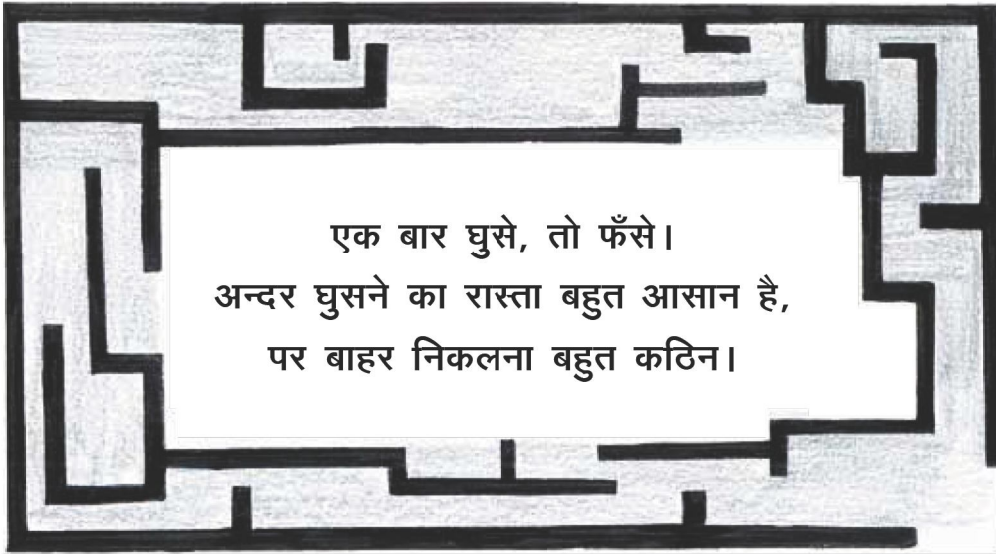 एक बार घुसे, तो फँसे।
अन्दर घुसने का रास्ता बहुत आसान है,
पर बाहर निकलना बहुत कठिन।